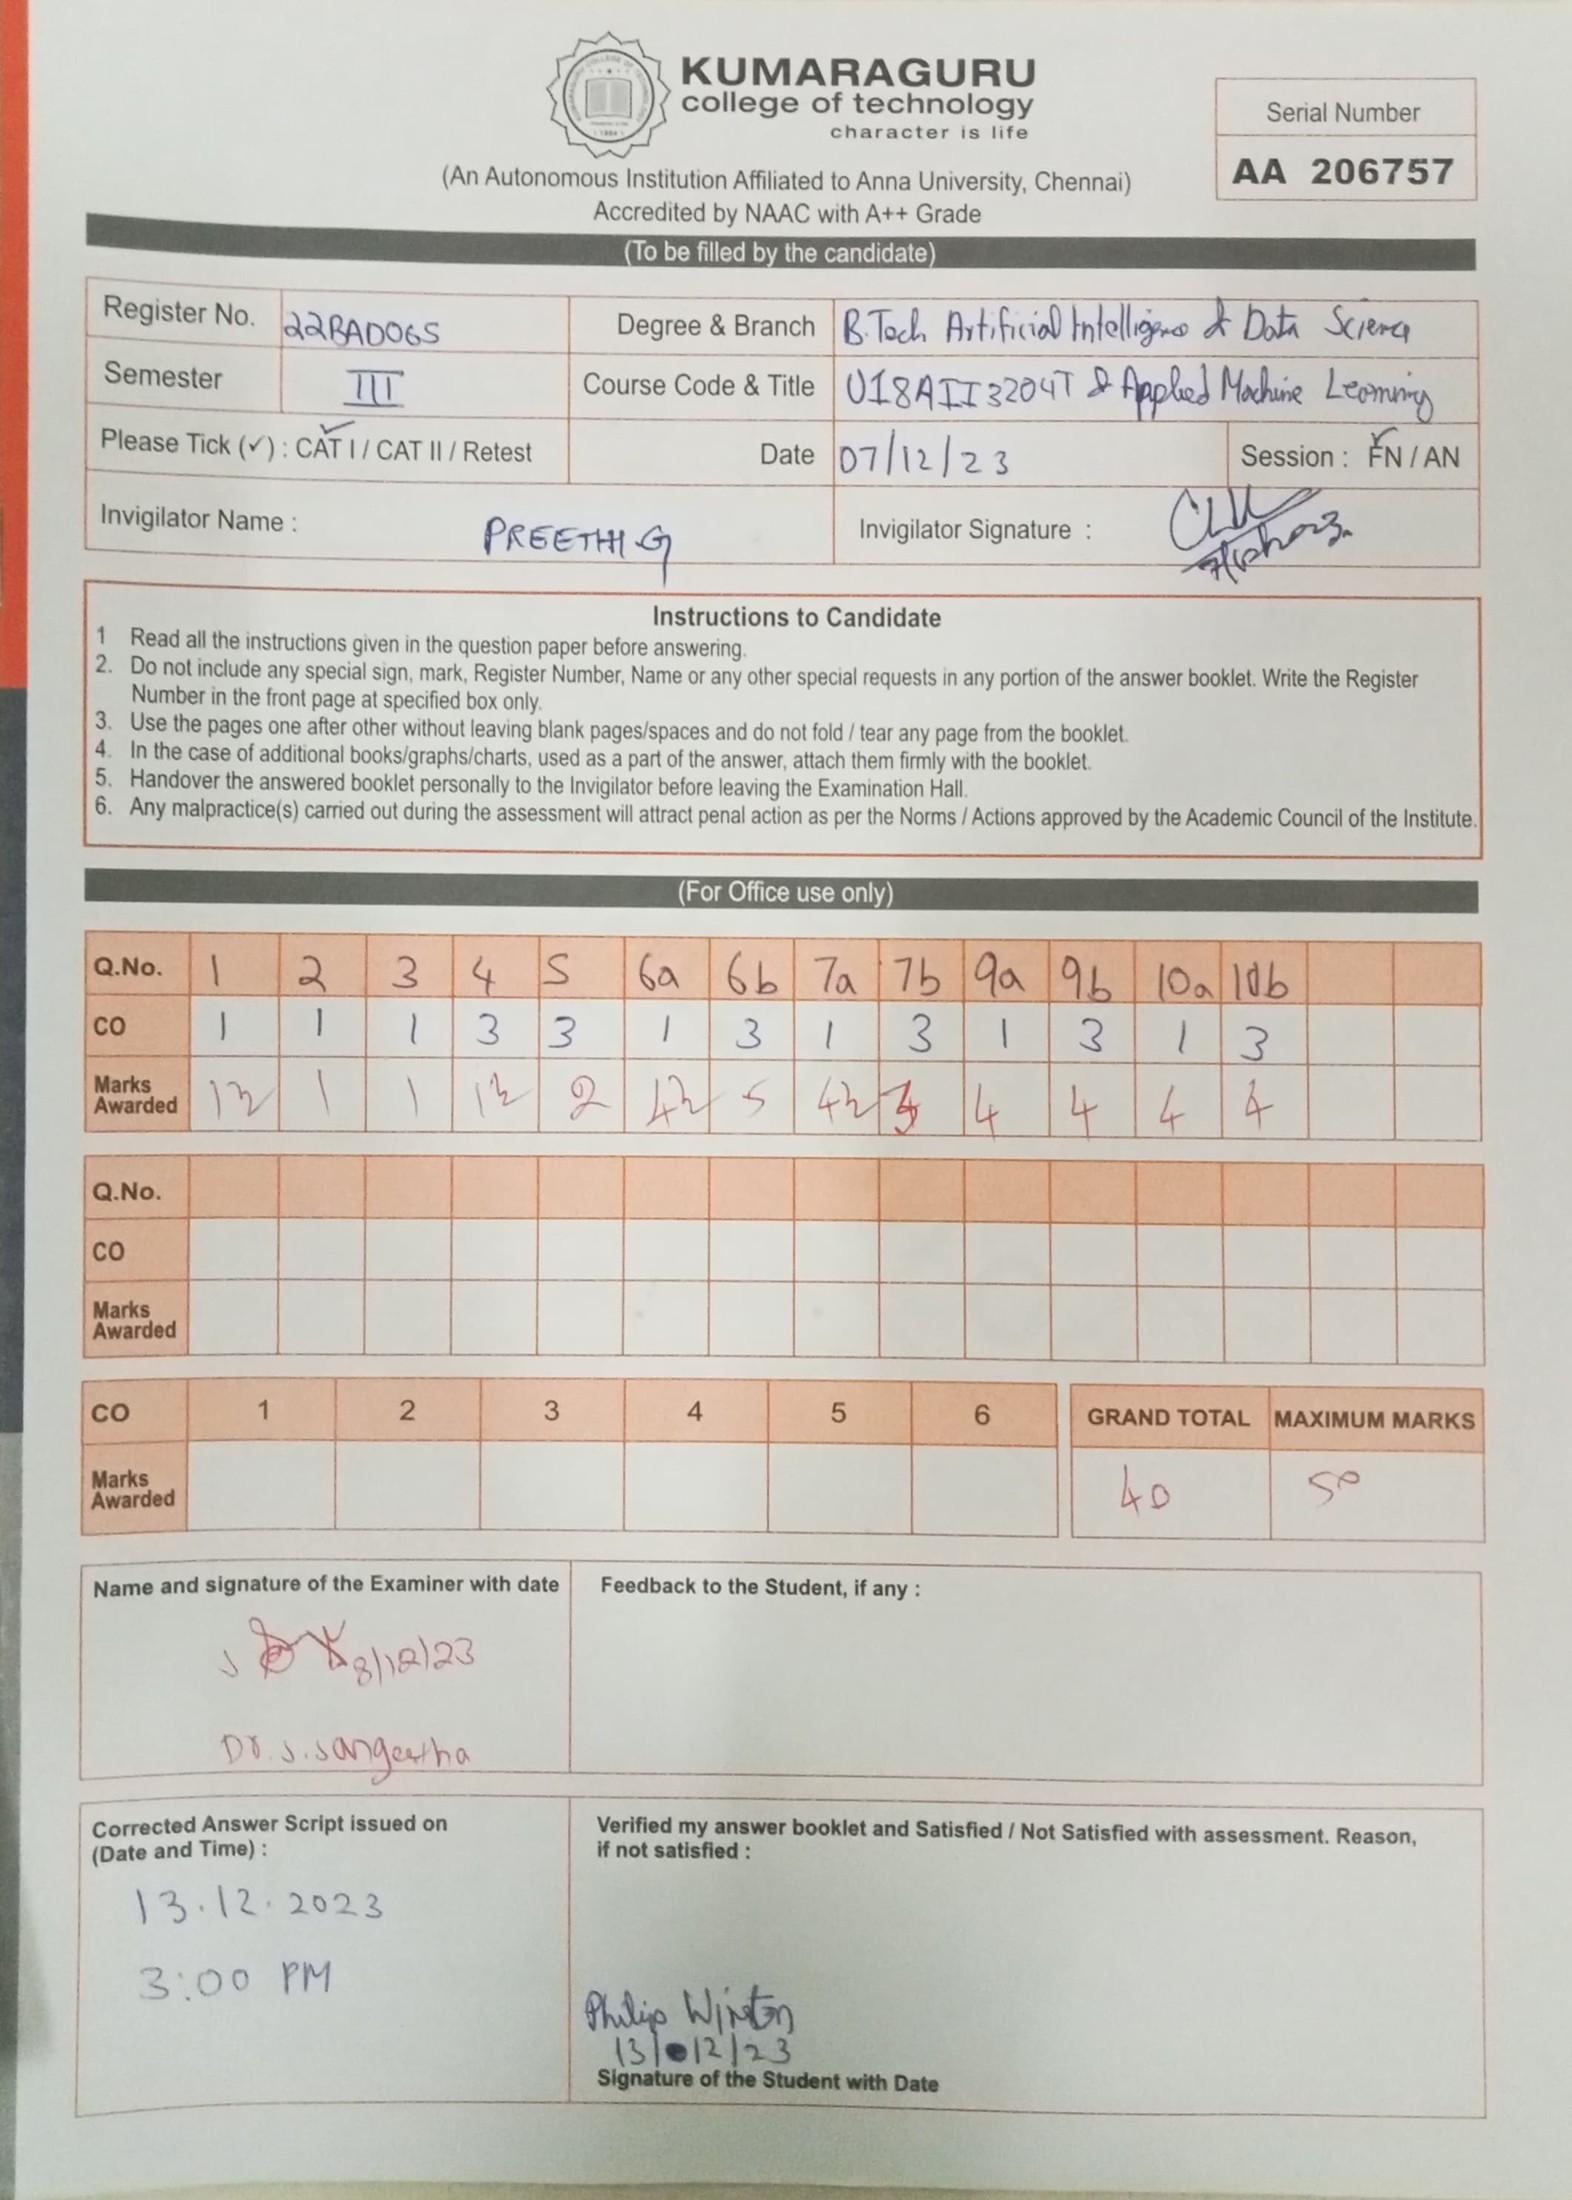 KUMARAGURU
college of technology
character is life
Serial Number
AA 206757
(An Autonomous Institution Affiliated to Anna University, Chennai)
Accredited by NAAC with A++ Grade
(To be filled by the candidate)
Register No. 22BAD065 Degree & Branch B.Tech Artificial Intelligence & Data Science
Semester III Course Code & Title U18AII3204T & Applied Machine Learning
Please Tick (✓) : CAT I / CAT II / Retest Date 07/12/23 Session : FN / AN
Invigilator Name : PREETHI G Invigilator Signature :
Instructions to Candidate
1 Read all the instructions given in the question paper before answering.
2. Do not include any special sign, mark, Register Number, Name or any other special requests in any portion of the answer booklet. Write the Register
Number in the front page at specified box only.
3. Use the pages one after other without leaving blank pages/spaces and do not fold / tear any page from the booklet.
4. In the case of additional books/graphs/charts, used as a part of the answer, attach them firmly with the booklet.
5. Handover the answered booklet personally to the Invigilator before leaving the Examination Hall.
6. Any malpractice(s) carried out during the assessment will attract penal action as per the Norms / Actions approved by the Academic Council of the Institute.
(For Office use only)
Q.No. 1 2 3 4 5 6a 6b 7a 7b 9a 9b 10a 10b
CO 1 1 1 3 3 1 3 1 3 1 3 1 3
Marks Awarded 1½ 1 1 1½ 2 4½ 5 4½ 4 4 4 4
Q.No.
CO
Marks Awarded
CO 1 2 3 4 5 6 GRAND TOTAL MAXIMUM MARKS
Marks Awarded 40 50
Name and signature of the Examiner with date
8/12/23
Dr. S. Sangeetha
Feedback to the Student, if any :
Corrected Answer Script issued on
(Date and Time) :
13.12.2023
3:00 PM
Verified my answer booklet and Satisfied / Not Satisfied with assessment. Reason,
if not satisfied :
Philip Winston
13/12/23
Signature of the Student with Date